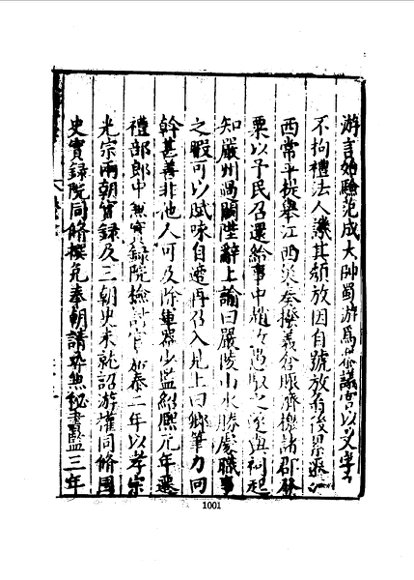 游言始驗范成大帥蜀游為參議官以文字交
不拘禮法人譏其頹放因自號放翁後累遷江
西常平提舉江西災奏撥義倉賑濟檄諸郡發
粟以予民召還給事中趙汝愚駁之遂與祠起
知嚴州過闕陛辭上諭曰嚴陵山水勝處職事
之暇可以賦咏自適再召入見上曰卿筆力回
斡甚善非他人可及除軍器少監紹熙元年遷
禮部郎中兼實錄院檢討官嘉泰二年以孝宗
光宗兩朝實錄及三朝史未就詔游權同脩國
史實錄院同脩撰免奉朝請尋兼秘書監三年
1001